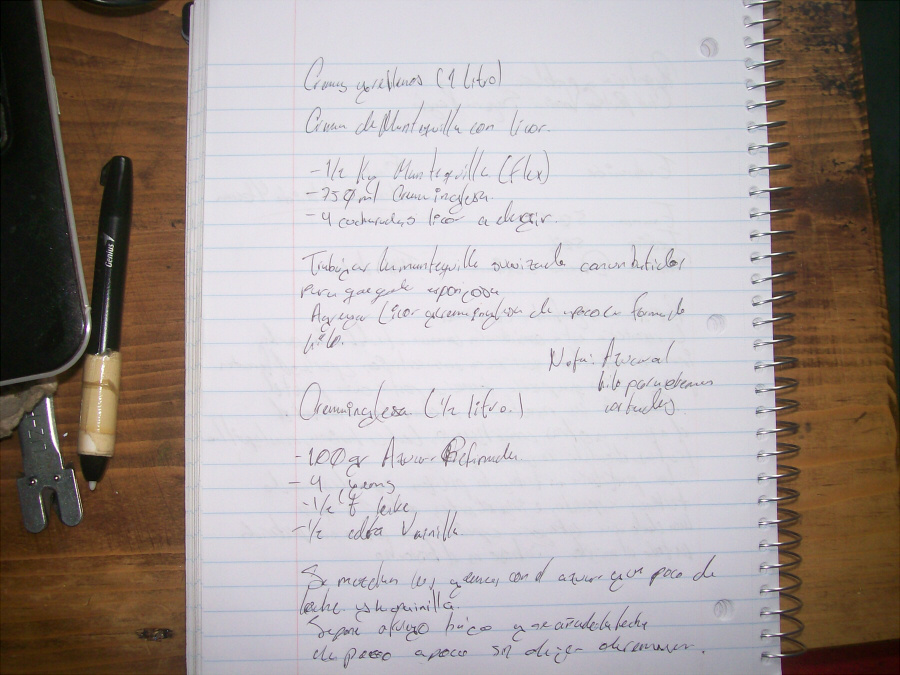 Cremas y rellenos (1 litro)
Crema de Mantequilla con licor.
- 1/2 Kg Mantequilla (Flex)
- 750 ml Crema inglesa.
- 4 cucharadas licor a elegir.
Trabajar la mantequilla suavizada con batidor
para que quede esponjosa
Agregar licor y crema inglesa de a poco en forma de
hilo.
Nota: Azucar al
hilo para cremas
cortadas.
Crema inglesa (1/2 litro.)
- 100 gr Azucar Refinada
- 4 yemas
- 1/2 leche
- 1/2 Vainilla.
Se mezclan las yemas con el azucar y un poco de
leche y la vainilla.
Se pone a fuego bajo y se añade la leche
de poco a poco sin dejar de remover.
Genius